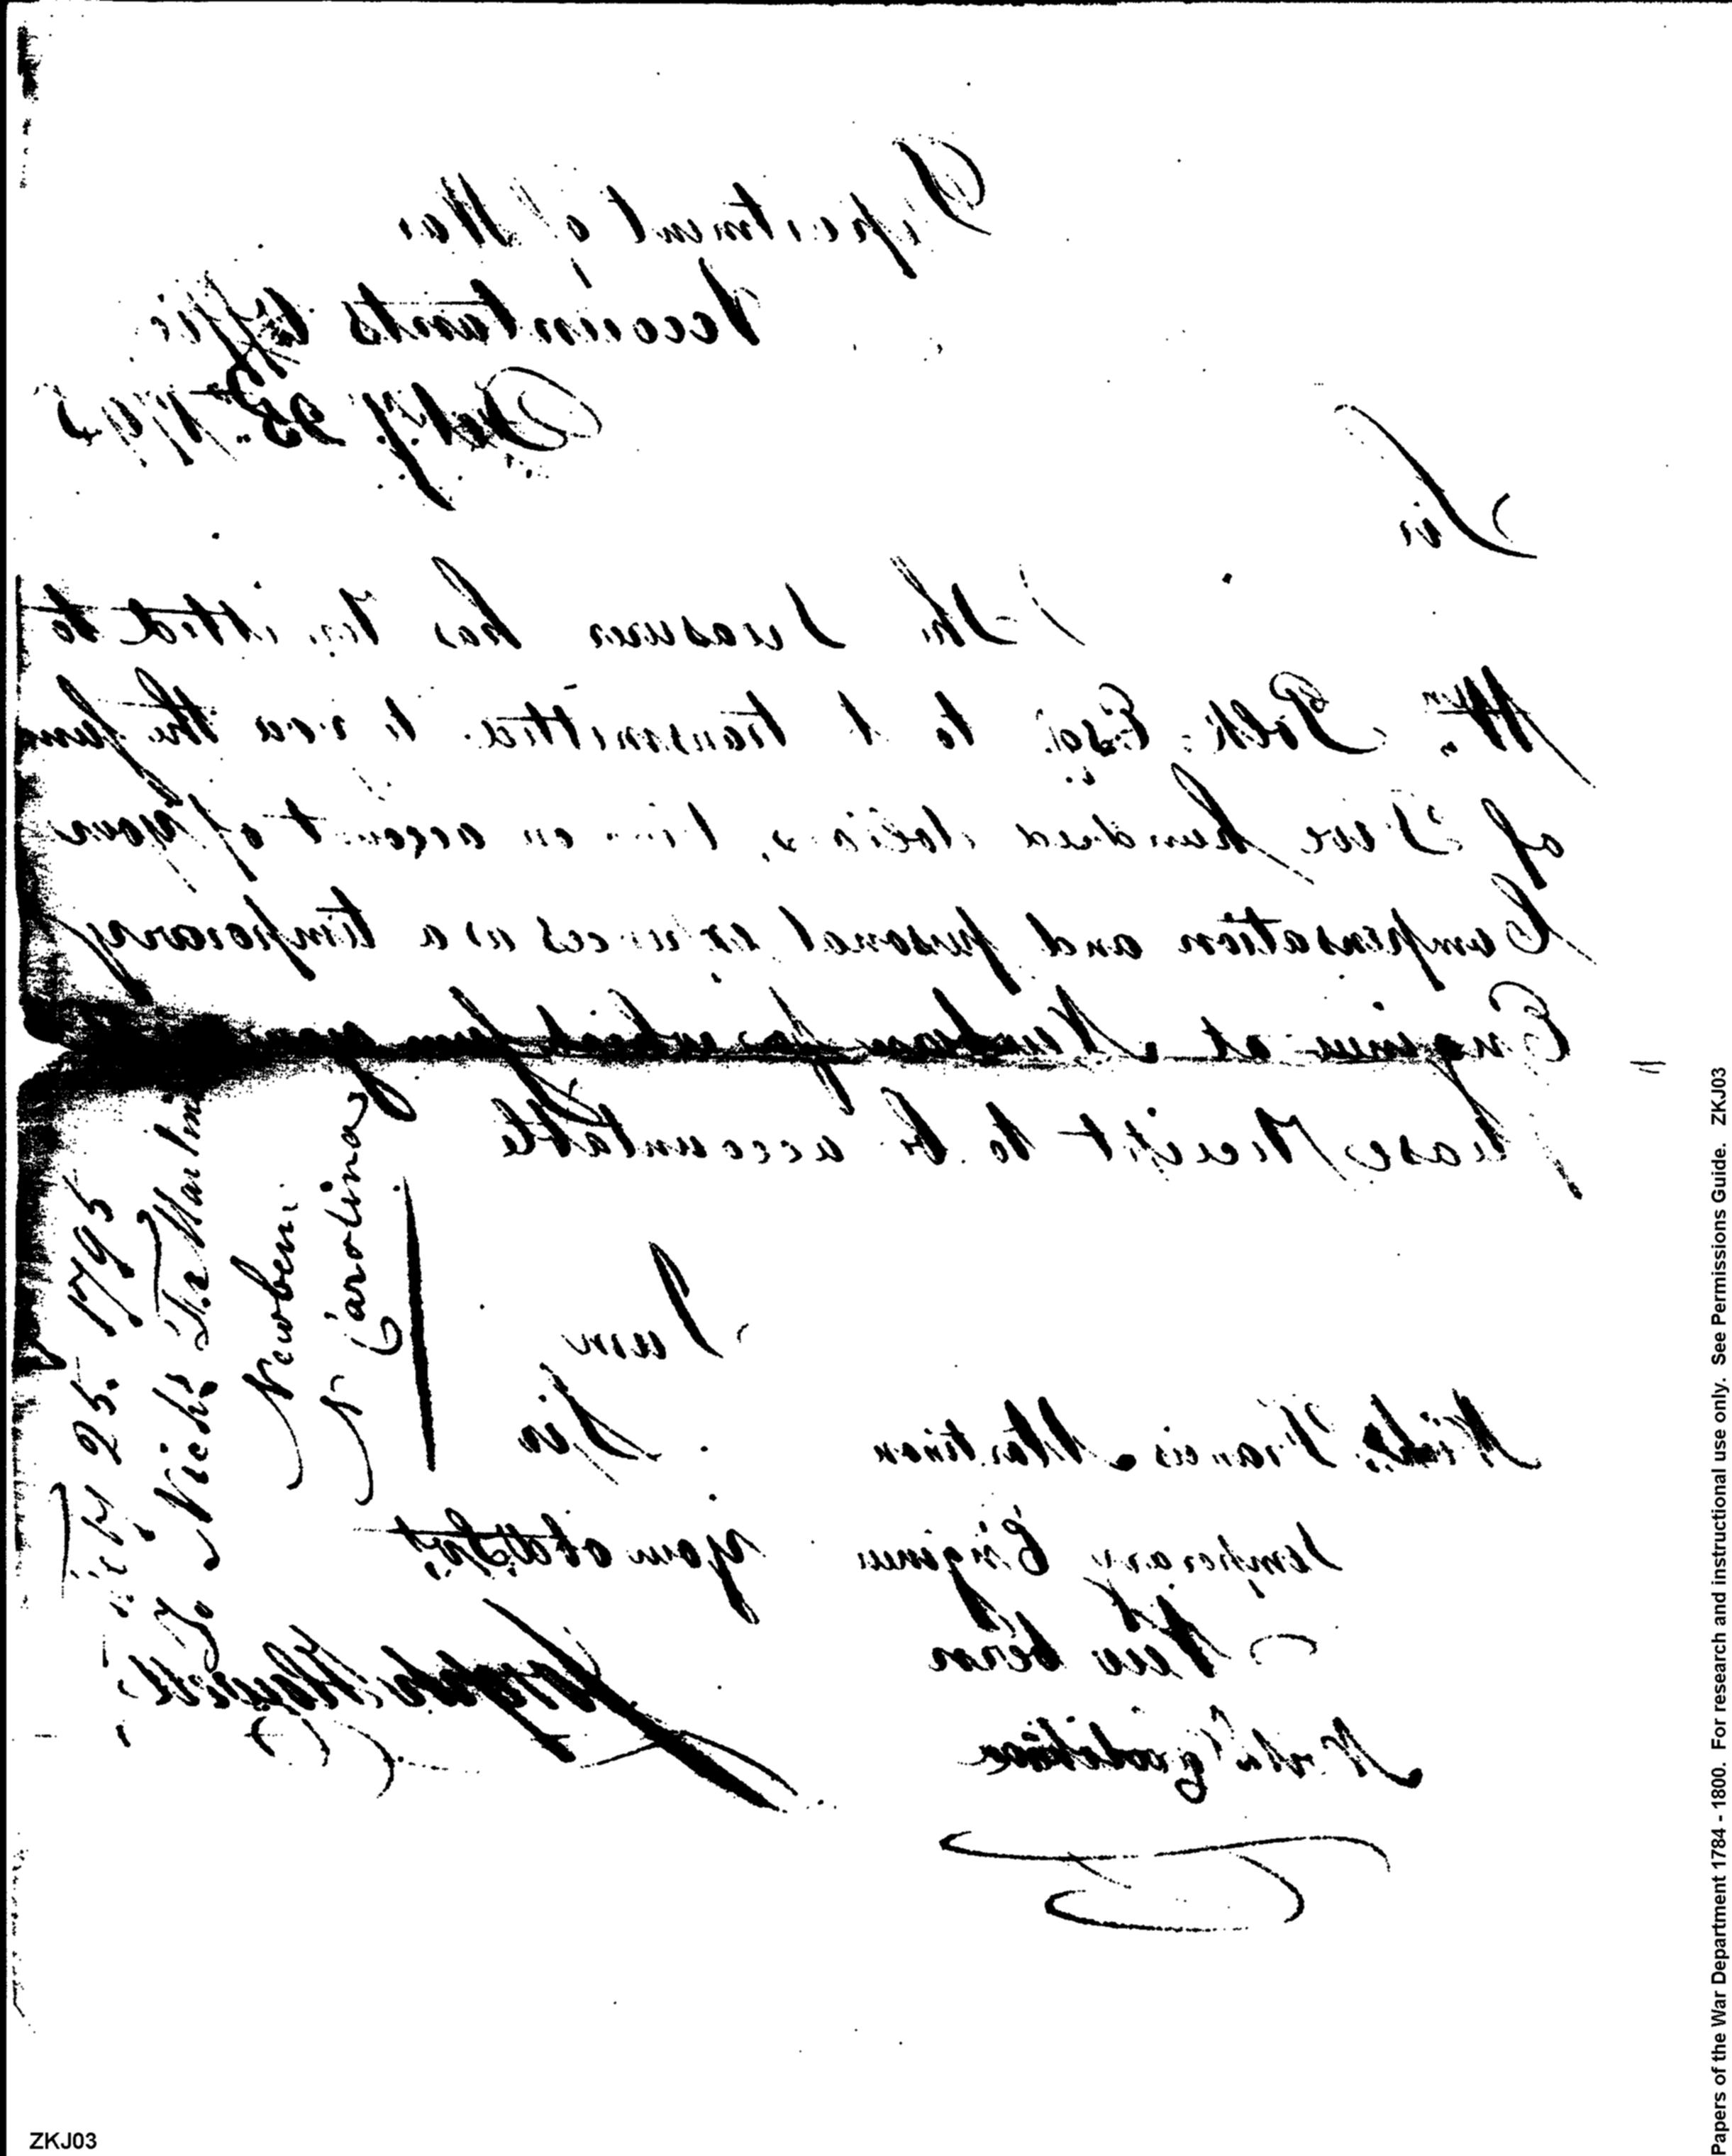 Department of War
Accountants Office
25th 1795
Sir
The Treasurer has remitted to
Wm. Polk Esqr. to be transmitted to you the sum
of Two hundred dollars, on account of your
Compensation and personal expences as a temporary
Engineer at Newbern for which sum you
please Receipt to be accountable
I am
Sir
your obed Svt
Joseph Howell
Nichs. Francis Martinon
Temporary Engineer
New bern
North Carolina
25. 1795
To Nichs. Frs Martinon
Newbern
N Carolina
Papers of the War Department 1784 - 1800. For research and instructional use only. See Permissions Guide. ZKJ03
ZKJ03